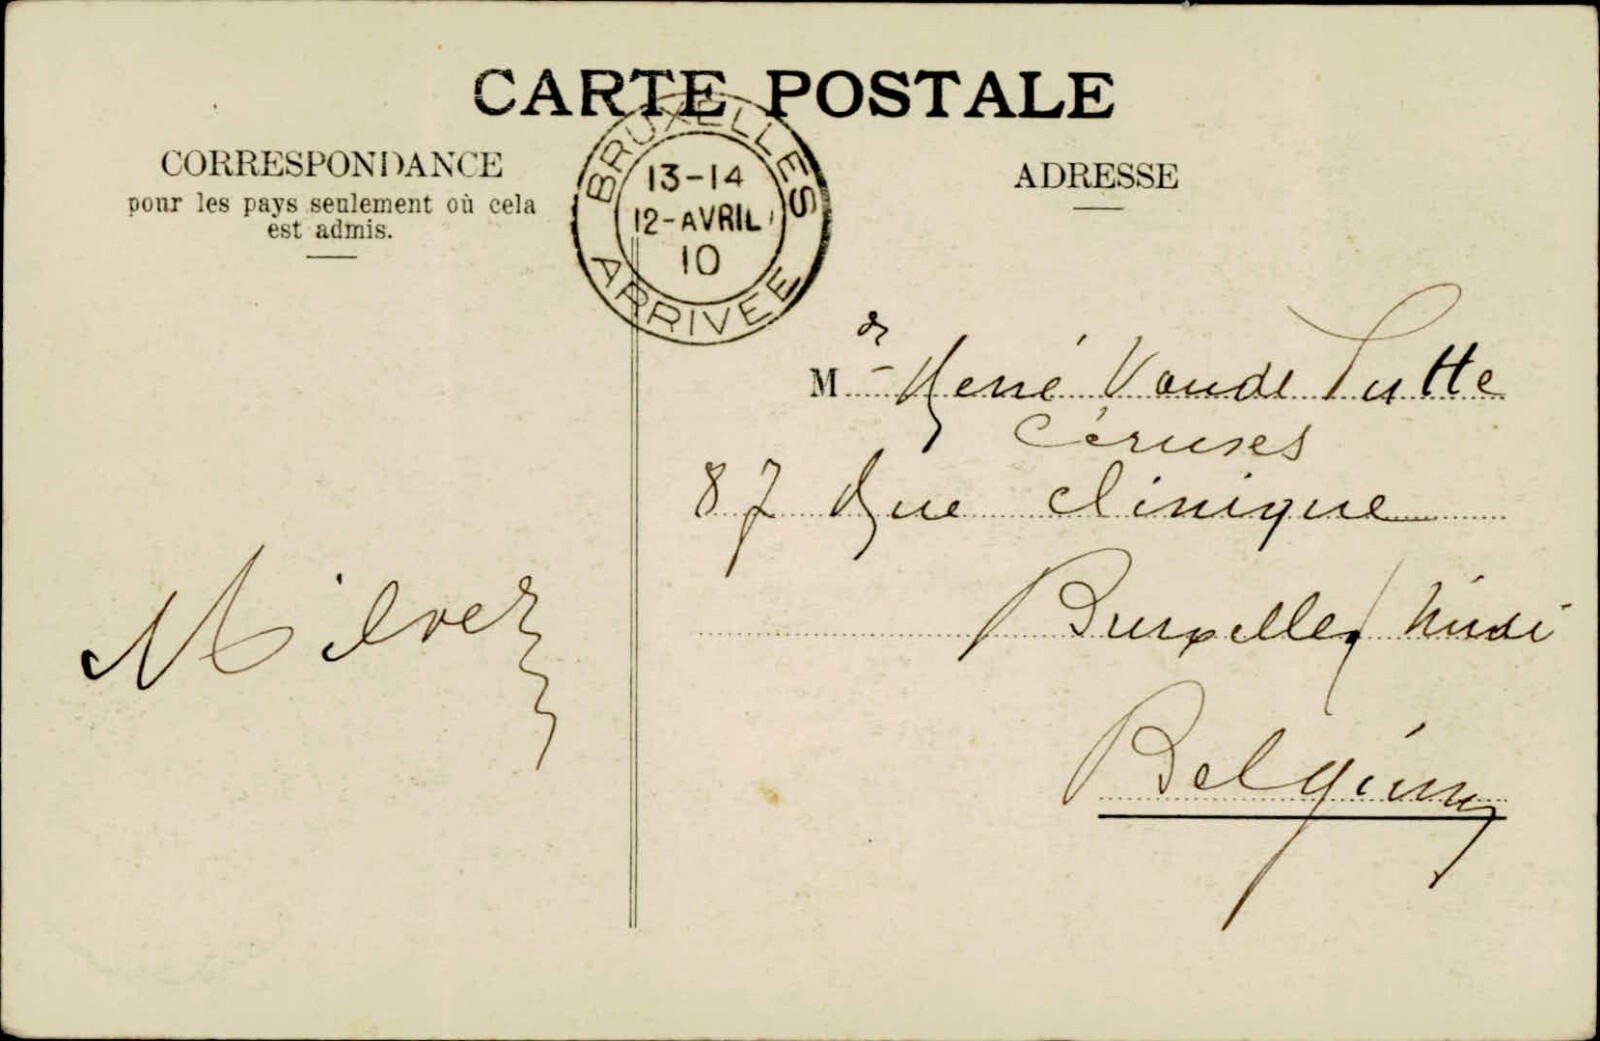 CARTE POSTALE
CORRESPONDANCE
pour les pays seulement où cela
est admis.
BRUXELLES
13-14
12-AVRIL
10
ARRIVEE
ADRESSE
Mr René Vande Putte
Céruses
87 Rue Clinique
Bruxelles Midi
Belgium